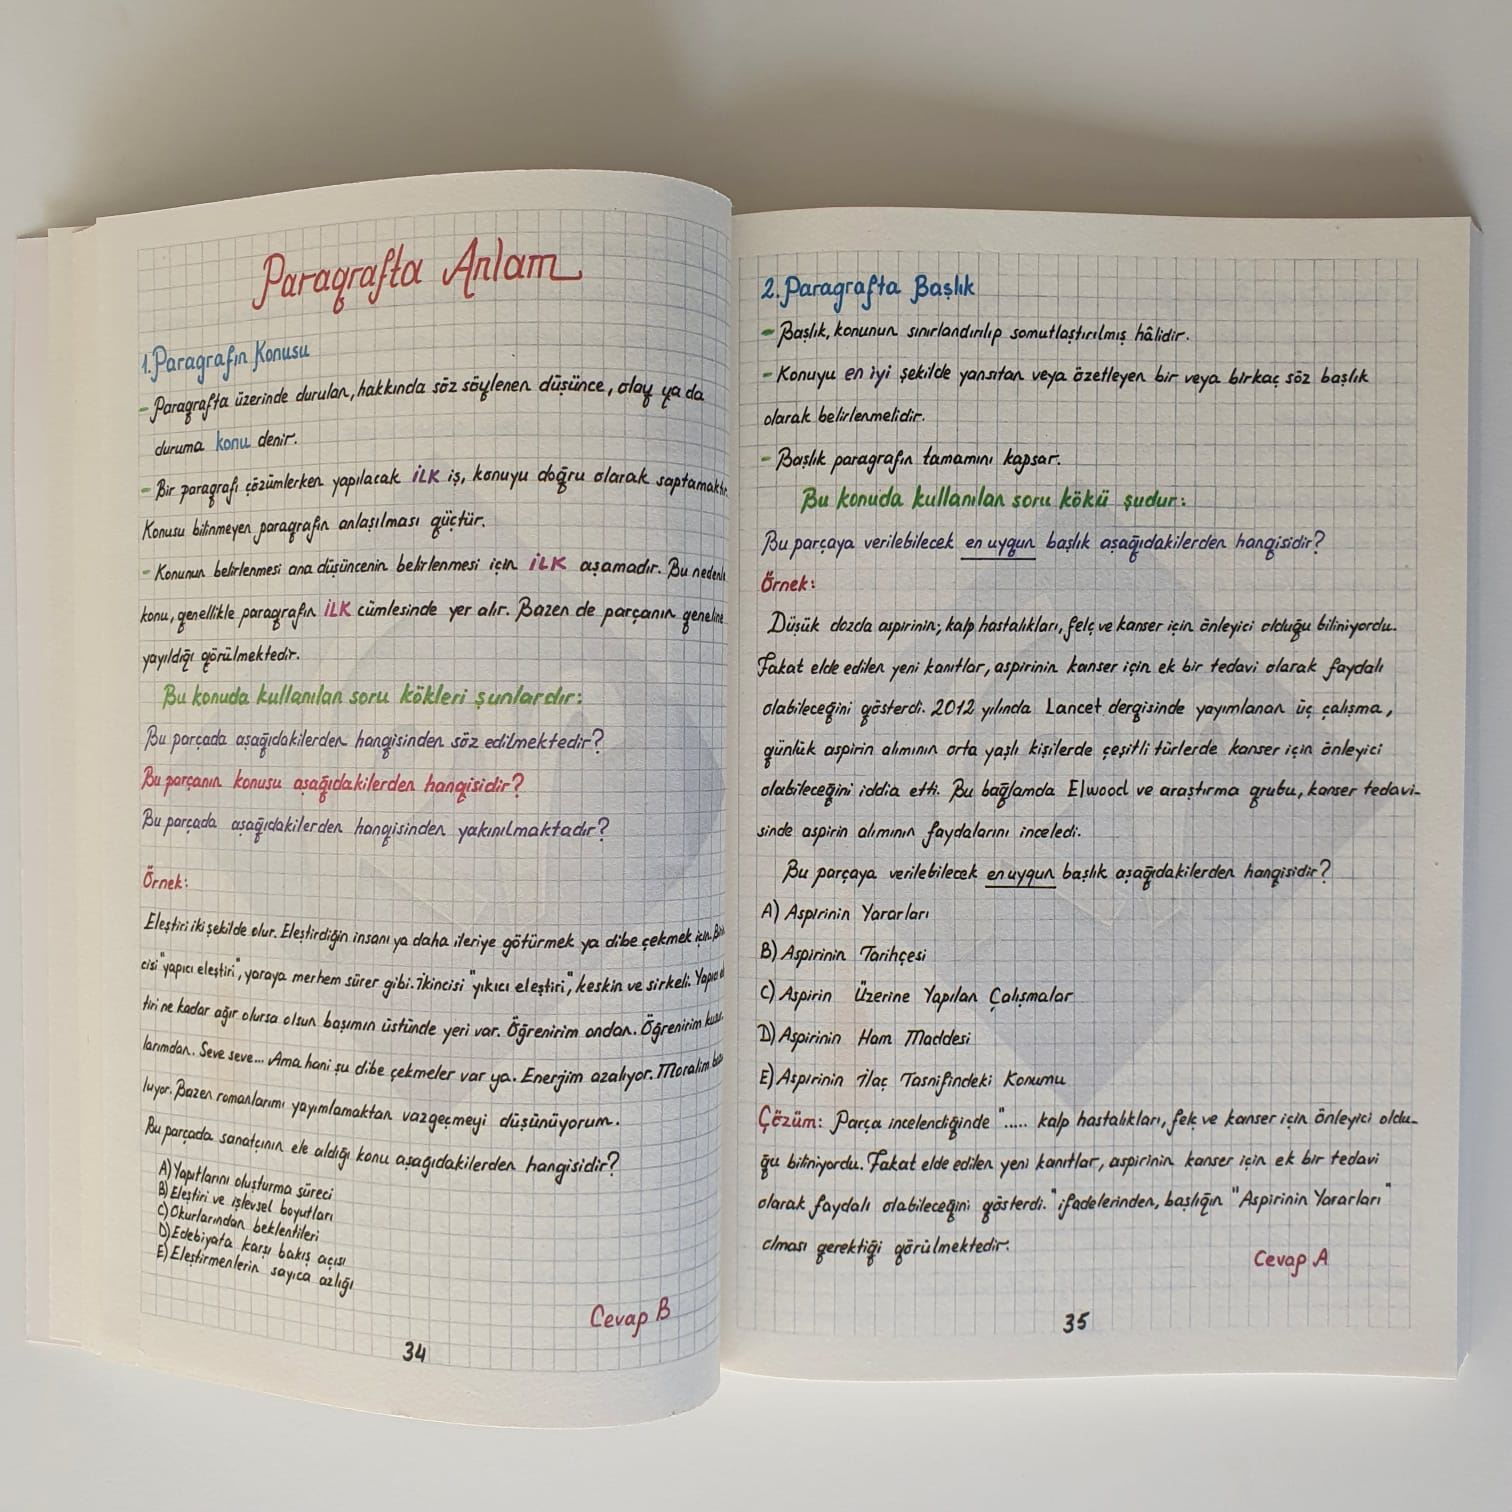 Paragrafta Anlam
1. Paragrafın Konusu
- Paragrafta üzerinde durulan, hakkında söz söylenen düşünce, olay ya da
duruma konu denir.
- Bir paragrafı çözümlerken yapılacak İLK iş, konuyu doğru olarak saptamaktır.
Konusu bilinmeyen paragrafın anlaşılması güçtür.
- Konunun belirlenmesi ana düşüncenin belirlenmesi için İLK aşamadır. Bu nedenle
konu, genellikle paragrafın İLK cümlesinde yer alır. Bazen de parçanın geneline
yayıldığı görülmektedir.
Bu konuda kullanılan soru kökleri şunlardır:
Bu parçada aşağıdakilerden hangisinden söz edilmektedir?
Bu parçanın konusu aşağıdakilerden hangisidir?
Bu parçada aşağıdakilerden hangisinden yakınılmaktadır?
Örnek:
Eleştiri iki şekilde olur. Eleştirdiğin insanı ya daha ileriye götürmek ya dibe çekmek için.
cisi "yapıcı eleştiri", yaraya merhem sürer gibi. İkincisi "yıkıcı eleştiri", keskin ve sirkeli. Yapıcı
tiri ne kadar ağır olursa olsun başımın üstünde yeri var. Öğrenirim ondan. Öğrenirim
larımdan. Seve seve... Ama hani şu dibe çekmeler var ya. Enerjim azalıyor. Moralim
luyor. Bazen romanlarımı yayımlamaktan vazgeçmeyi düşünüyorum.
Bu parçada sanatçının ele aldığı konu aşağıdakilerden hangisidir?
A) Yapıtlarını oluşturma süreci
B) Eleştiri ve işlevsel boyutları
C) Okurlarından beklentileri
D) Edebiyata karşı bakış açısı
E) Eleştirmenlerin sayıca azlığı
Cevap B
34
2. Paragrafta Başlık
- Başlık, konunun sınırlandırılıp somutlaştırılmış hâlidir.
- Konuyu en iyi şekilde yansıtan veya özetleyen bir veya birkaç söz başlık
olarak belirlenmelidir.
- Başlık paragrafın tamamını kapsar.
Bu konuda kullanılan soru kökü şudur:
Bu parçaya verilebilecek en uygun başlık aşağıdakilerden hangisidir?
Örnek:
Düşük dozda aspirinin; kalp hastalıkları, felç ve kanser için önleyici olduğu biliniyordu.
Fakat elde edilen yeni kanıtlar, aspirinin kanser için ek bir tedavi olarak faydalı
olabileceğini gösterdi. 2012 yılında Lancet dergisinde yayımlanan üç çalışma,
günlük aspirin alımının orta yaşlı kişilerde çeşitli türlerde kanser için önleyici
olabileceğini iddia etti. Bu bağlamda Elwood ve araştırma grubu, kanser tedavi-
sinde aspirin alımının faydalarını inceledi.
Bu parçaya verilebilecek en uygun başlık aşağıdakilerden hangisidir?
A) Aspirinin Yararları
B) Aspirinin Tarihçesi
C) Aspirin Üzerine Yapılan Çalışmalar
D) Aspirinin Ham Maddesi
E) Aspirinin İlaç Tasnifindeki Konumu
Çözüm: Parça incelendiğinde "..... kalp hastalıkları, felç ve kanser için önleyici oldu-
ğu biliniyordu. Fakat elde edilen yeni kanıtlar, aspirinin kanser için ek bir tedavi
olarak faydalı olabileceğini gösterdi." ifadelerinden, başlığın "Aspirinin Yararları"
olması gerektiği görülmektedir.
Cevap A
35